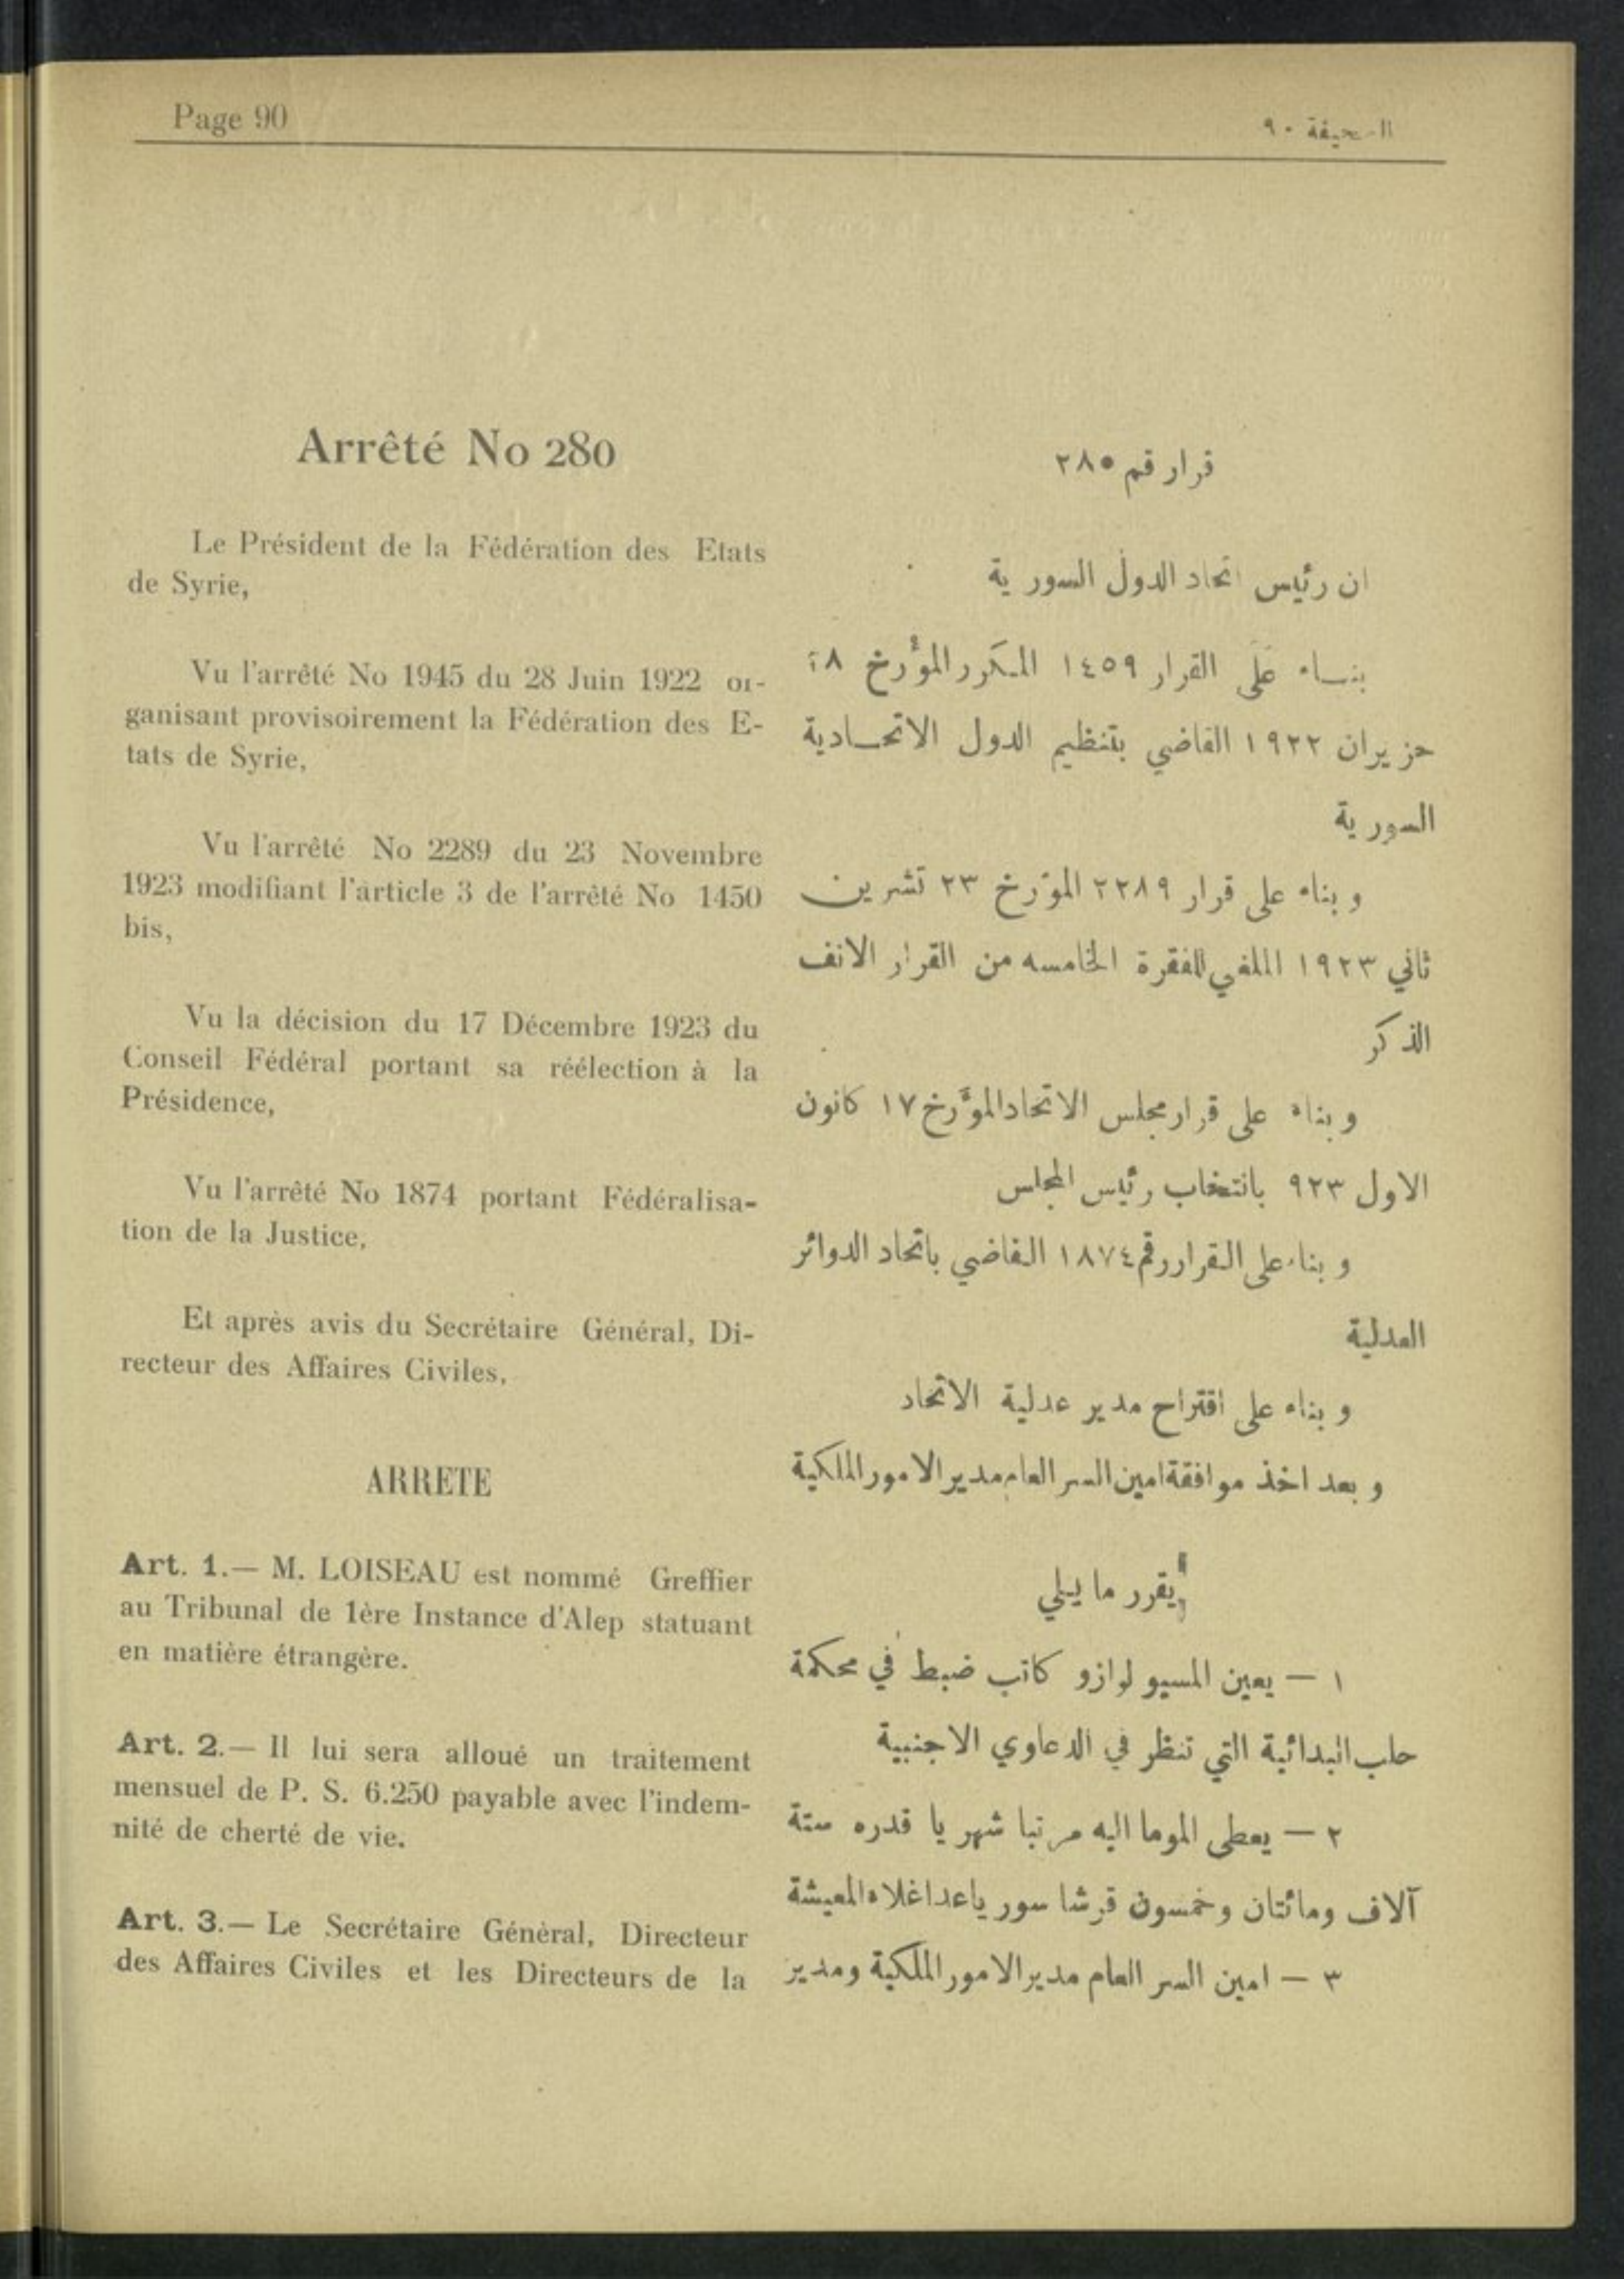 Page 90
الصحيفة ٩٠
Arrêté No 280
Le Président de la Fédération des Etats
de Syrie,
Vu l'arrêté No 1945 du 28 Juin 1922 or-
ganisant provisoirement la Fédération des E-
tats de Syrie,
Vu l'arrêté No 2289 du 23 Novembre
1923 modifiant l'article 3 de l'arrêté No 1450
bis,
Vu la décision du 17 Décembre 1923 du
Conseil Fédéral portant sa réélection à la
Présidence,
Vu l'arrêté No 1874 portant Fédéralisa-
tion de la Justice,
Et après avis du Secrétaire Général, Di-
recteur des Affaires Civiles,
ARRETE
Art. 1.— M. LOISEAU est nommé Greffier
au Tribunal de 1ère Instance d'Alep statuant
en matière étrangère.
Art. 2.— Il lui sera alloué un traitement
mensuel de P. S. 6.250 payable avec l'indem-
nité de cherté de vie.
Art. 3.— Le Secrétaire Génèral, Directeur
des Affaires Civiles et les Directeurs de la
قرار قم ٢٨٥
ان رئيس اتحاد الدول السورية
بنـاء عَلَى القرار ١٤٥٩ المكرر المؤرخ ٢٨
حزيران ١٩٢٢ القاضي بتنظيم الدول الاتحـادية
السورية
وبناء على قرار ٢٢٨٩ المؤرخ ٢٣ تشرين
ثاني ١٩٢٣ الملغي للفقرة الخامسه من القرار الانف
الذكر
وبناء على قرار مجلس الاتحاد المؤرخ ١٧ كانون
الاول ٩٢٣ بانتخاب رئيس المجلس
وبناء على القرار رقم ١٨٧٤ القاضي باتحاد الدوائر
العدلية
وبناء على اقتراح مدير عدلية الاتحاد
وبعد اخذ موافقة امين السر العام مدير الامور الملكية
يقرر ما يلي
١ — يعين المسيو لوازو كاتب ضبط في محكمة
حلب البدائية التي تنظر في الدعاوي الاجنبية
٢ — يعطى الموما اليه مرتبا شهريا قدره ستة
آلاف ومائتان وخمسون قرشا سوريا عدا غلاء المعيشة
٣ — امين السر العام مدير الامور الملكية ومدير